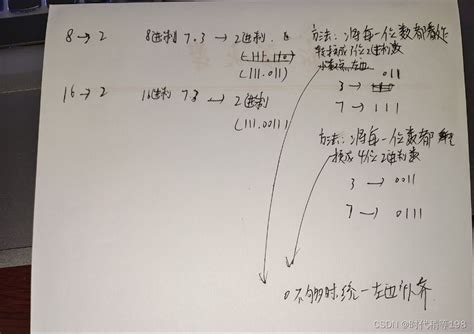 8→2 8进制 7.3 → 2进制
(111.011)
16→2 16进制 7.3 → 2进制
(111.0011)
方法：将每一位数都
转换成3位2进制数
011
3 →
7 → 111
方法：将每一位数都
换成4位2进制数
3 → 0011
7 → 0111
不够时统一左边补齐
CSDN @时代稍等198